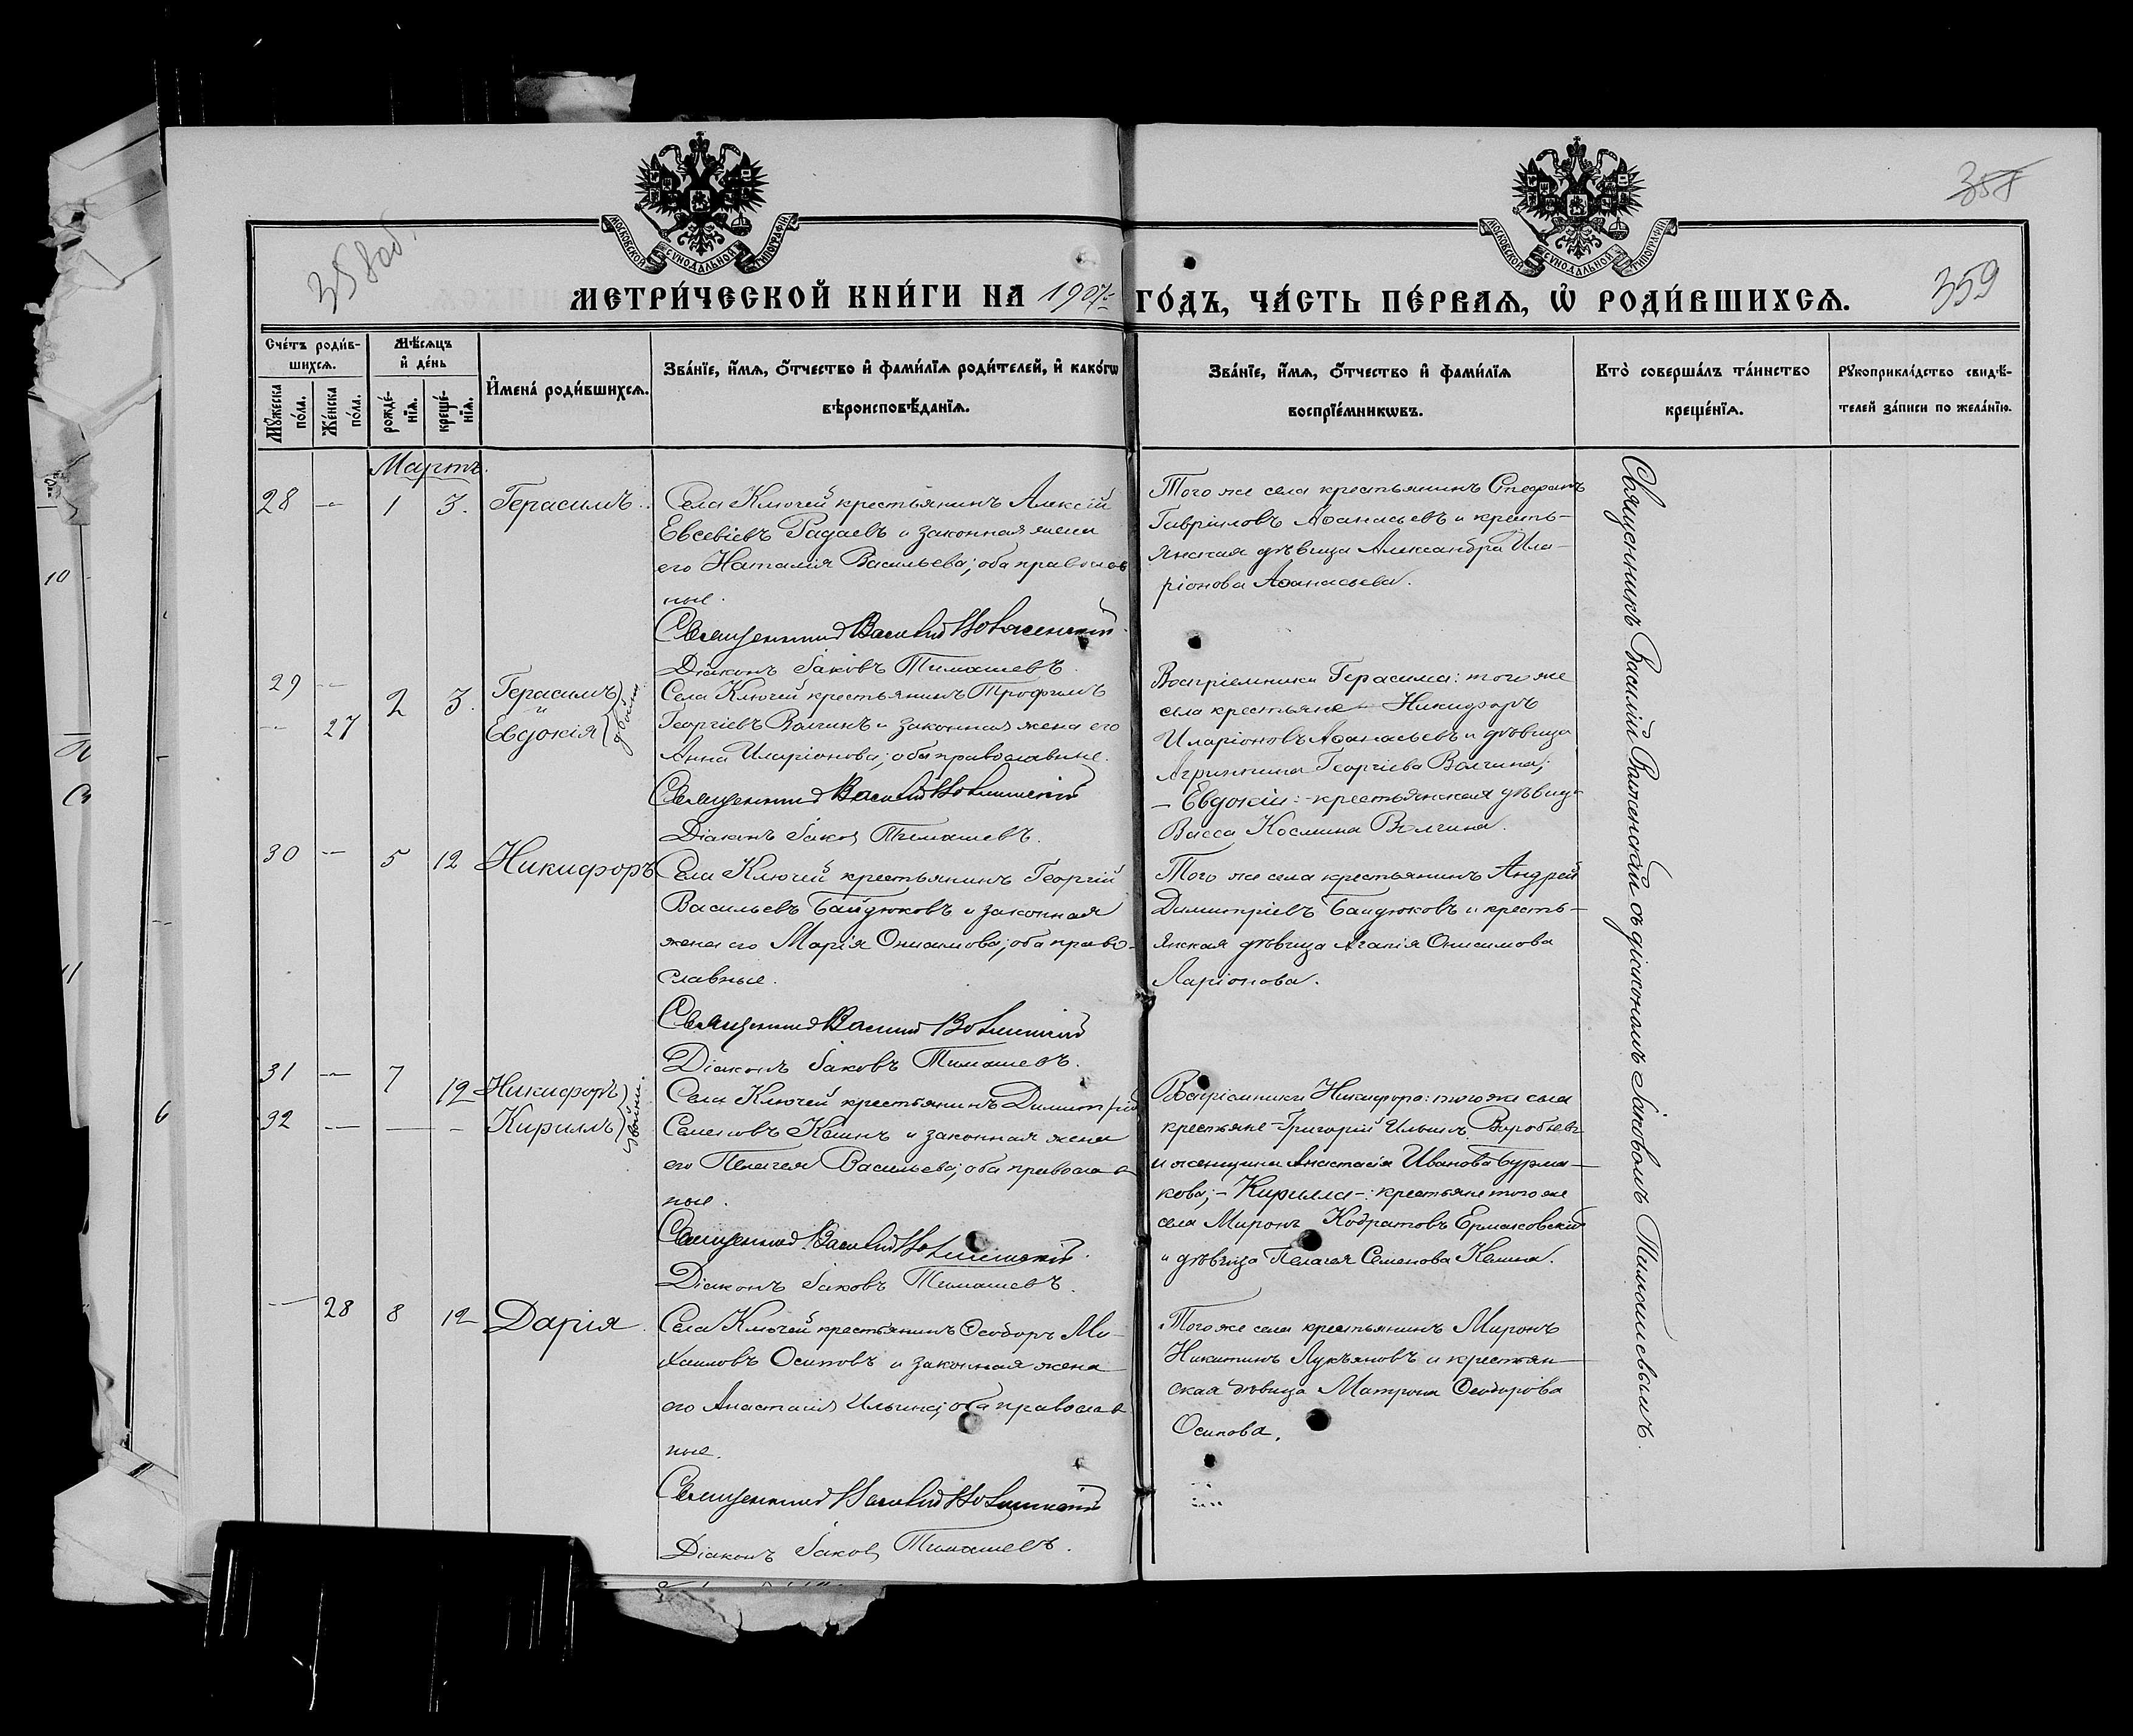 358 об.
358
359
МОСКОВСКОЙ СѴНОДАЛЬНОЙ ТИПОГРАФІИ
МОСКОВСКОЙ СѴНОДАЛЬНОЙ ТИПОГРАФІИ
МЕТРИ́ЧЕСКОЙ КНИ́ГИ НА 1907 ГО́ДЪ, ЧА́СТЬ ПЕ́РВАЯ, Ѡ҆ РОДИ́ВШИХСѦ.
Сче́тъ роди́в-
шихсѧ.
Мꙋ́жеска
по́ла.
Же́нска
по́ла.
Мѣ́сѧцъ
и҆ де́нь
рожде́-
нїѧ.
креще́-
нїѧ.
И҆мена̀ роди́вшихсѧ.
Зва́нїе, и҆́мѧ, ѻ҆́тчество и҆ фами́лїѧ роди́телей, и҆ како́гѡ
вѣроисповѣ́данїѧ.
Зва́нїе, и҆́мѧ, ѻ҆́тчество и҆ фами́лїѧ
воспрїе́мникѡвъ.
Кто̀ соверша́лъ та́инство
креще́нїѧ.
Рꙋкоприкла́дство свидѣ́-
телей за́писи по жела́нїю.
Мартъ.
28 — 1 3. Герасимъ.
Села Ключей крестьянинъ Алексій
Евсевіевъ Радаевъ и законная жена
его Наталія Васильева; оба православ
ные.
Священникъ Василій
Діаконъ Іаковъ Тимошевъ.
Того же села крестьянинъ
Гавріиловъ Аѳанасьевъ и кресть-
янская дѣвица Александра Ила-
ріонова Аѳанасьева.
29 —
— 27
2 3.
Герасимъ
и
Евдокія
двойни
Села Ключей крестьянинъ Трофимъ
Георгіевъ Волгинъ и законная жена его
Анна Иларіонова; оба православные.
Священникъ Василій
Діаконъ Іаковъ Тимошевъ.
Воспріемники Герасима: того же
села крестьяне — Никифоръ
Иларіоновъ Аѳанасьевъ и дѣвица
Агрипина Георгіева Волгина;
— Евдокіи: - крестьянская дѣвица
Васса Космина Волгина.
30 — 5 12 Никифоръ
Села Ключей крестьянинъ Георгій
Васильевъ Байдюковъ и законная
жена его Марія Онисимова; оба право-
славные.
Священникъ Василій
Діаконъ Іаковъ Тимошевъ.
Того же села крестьянинъ Андрей
Димитріевъ Байдюковъ и кресть-
янская дѣвица Агапія Онисимова
Ларіонова.
31 — 7 12 Никифоръ
32 — — - Кириллъ
двойни.
Села Ключей крестьянинъ Димитрій
Семеновъ Кошинъ и законная жена
его Пелагея Васильева; оба православ
ные.
Священникъ Василій
Діаконъ Іаковъ Тимошевъ.
Воспріемники Никифора: того же села
крестьяне - Григорій Ильинъ Воробьевъ
и женщина Анастасія Иванова Бурма-
кова; - Кирилла -: крестьяне того же
села Миронъ Кодратовъ Ермаковскій
и дѣвица Пелагея Семенова
— 28 8 12 Дарія.
Села Ключей крестьянинъ Ѳеодоръ Ми-
хаиловъ Осиповъ и законная жена
его Анастасія Ильина; оба православ
ные.
Священникъ Василій
Діаконъ Іаковъ Тимошевъ.
Того же села крестьянинъ Миронъ
Никитинъ Лукъяновъ и крестьян-
ская дѣвица Матрона Ѳеодорова
Осипова.
Священникъ Василій съ діакономъ Іаковомъ Тимошевымъ.
10
11
6